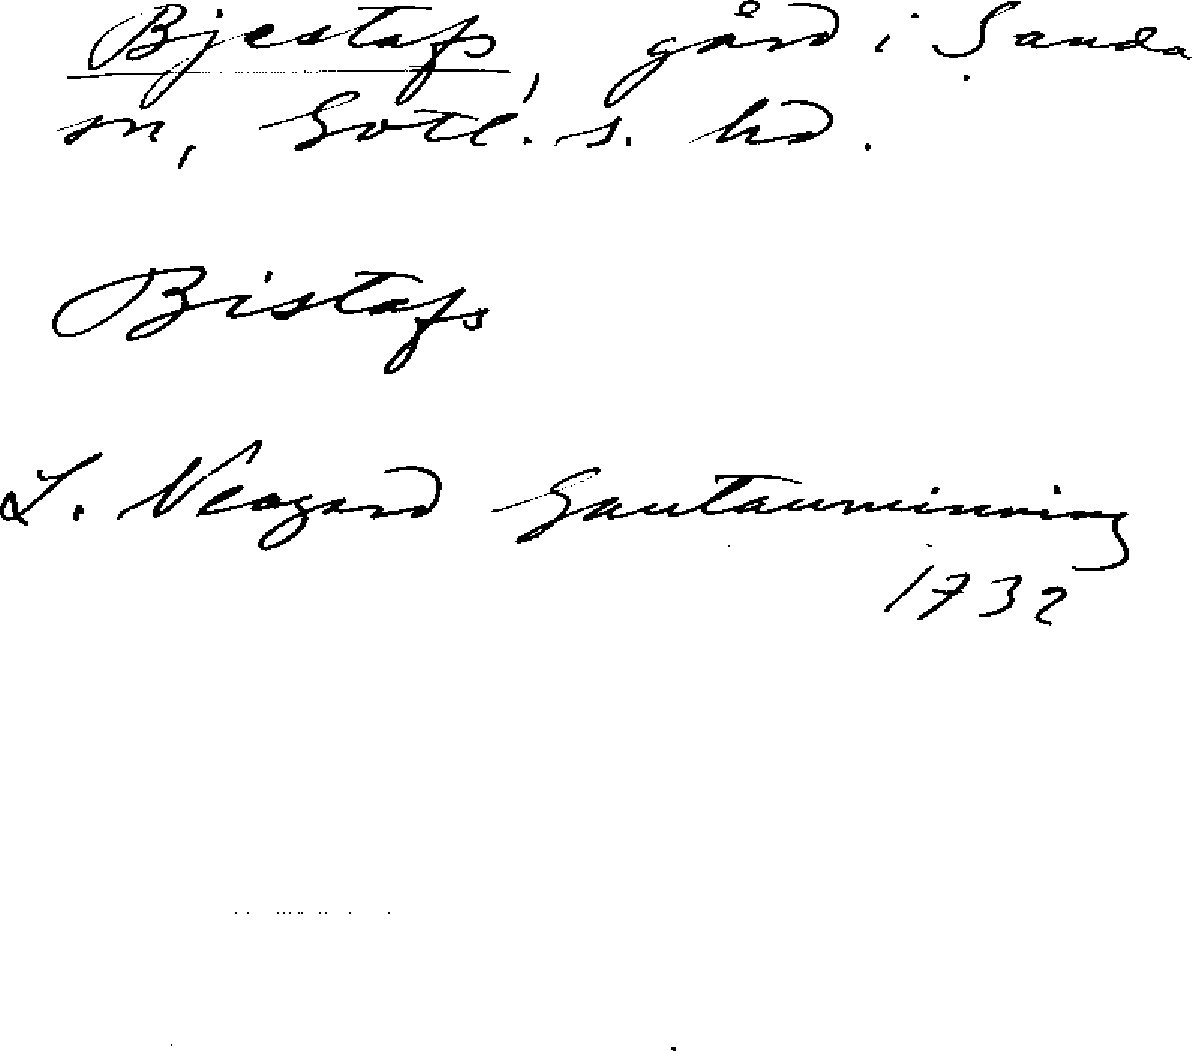 Bjestafs, gård i Sanda
sn, Gotl. s. hd.
Bistafs
L. Neogard Gautauminning
1732